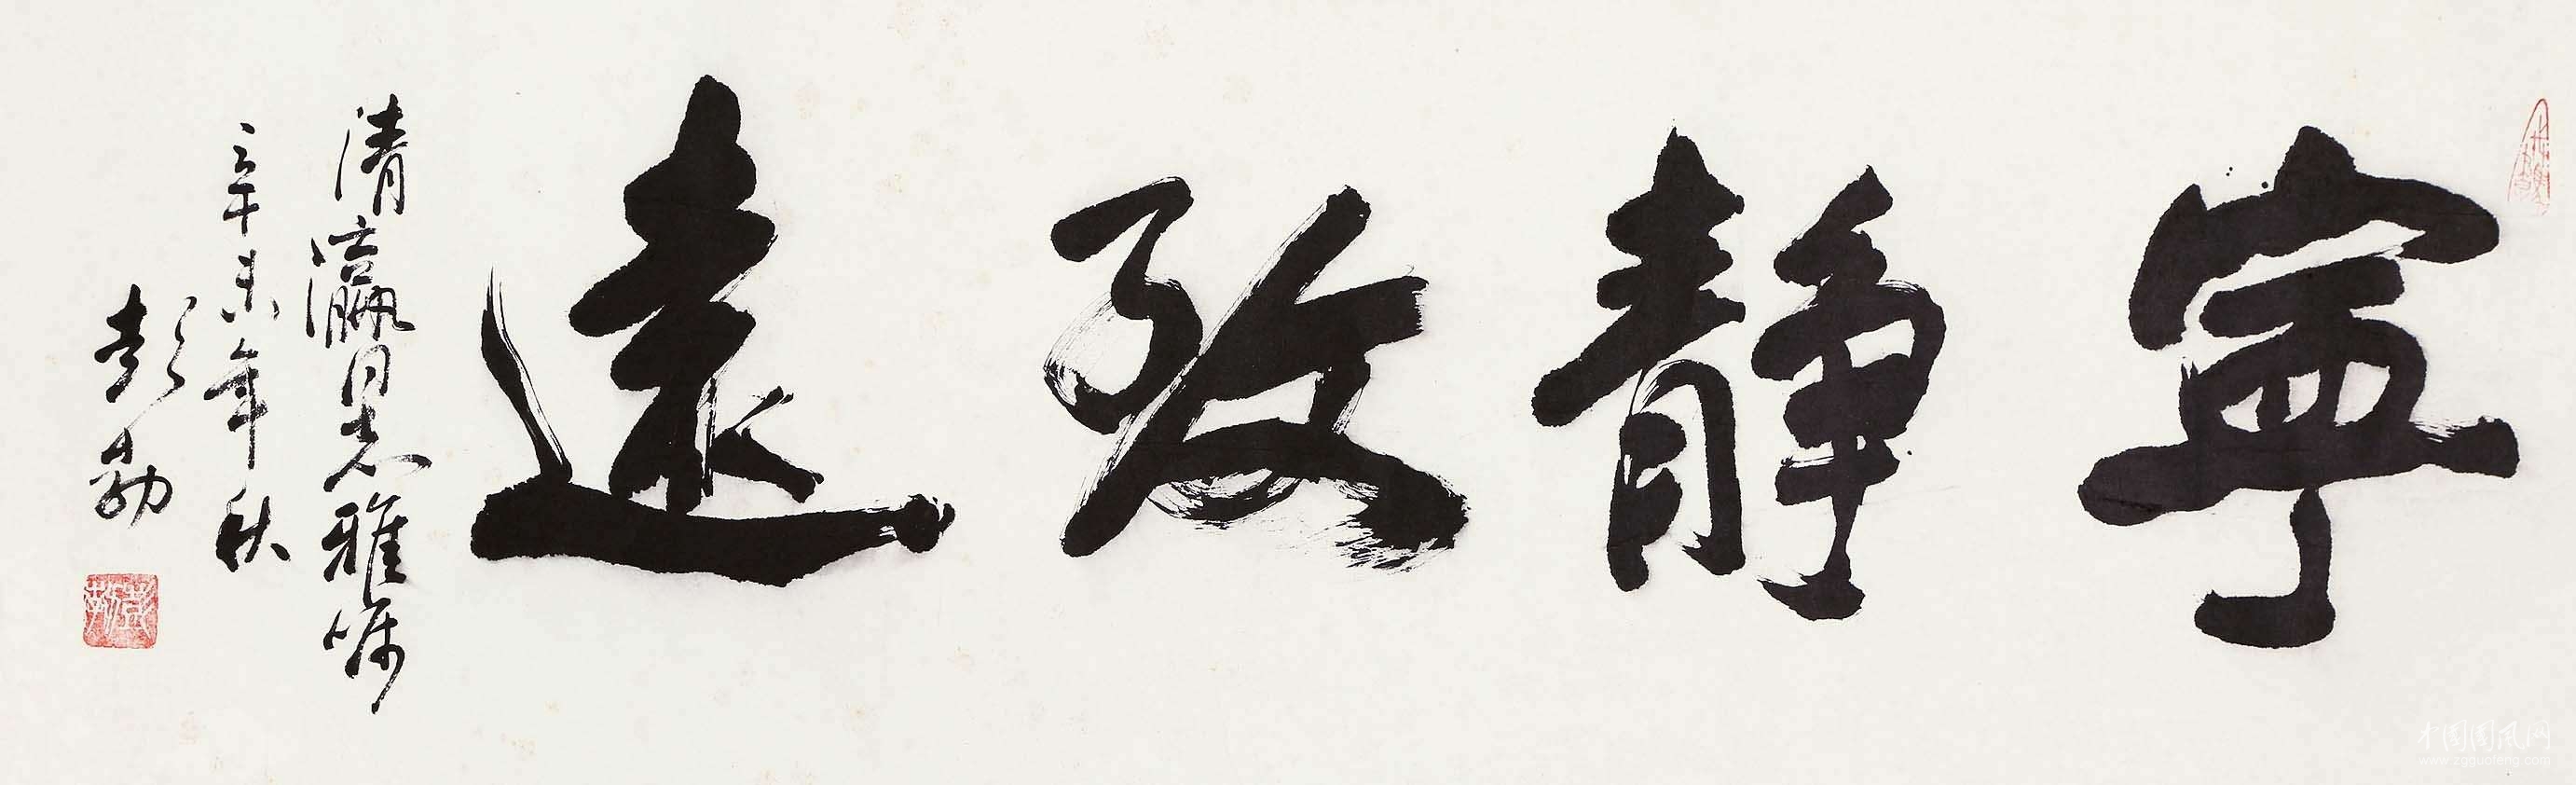 寧靜致遠
清瀛同志雅嘱
辛未年秋
彭勃
中国国风网
www.zgguofeng.com